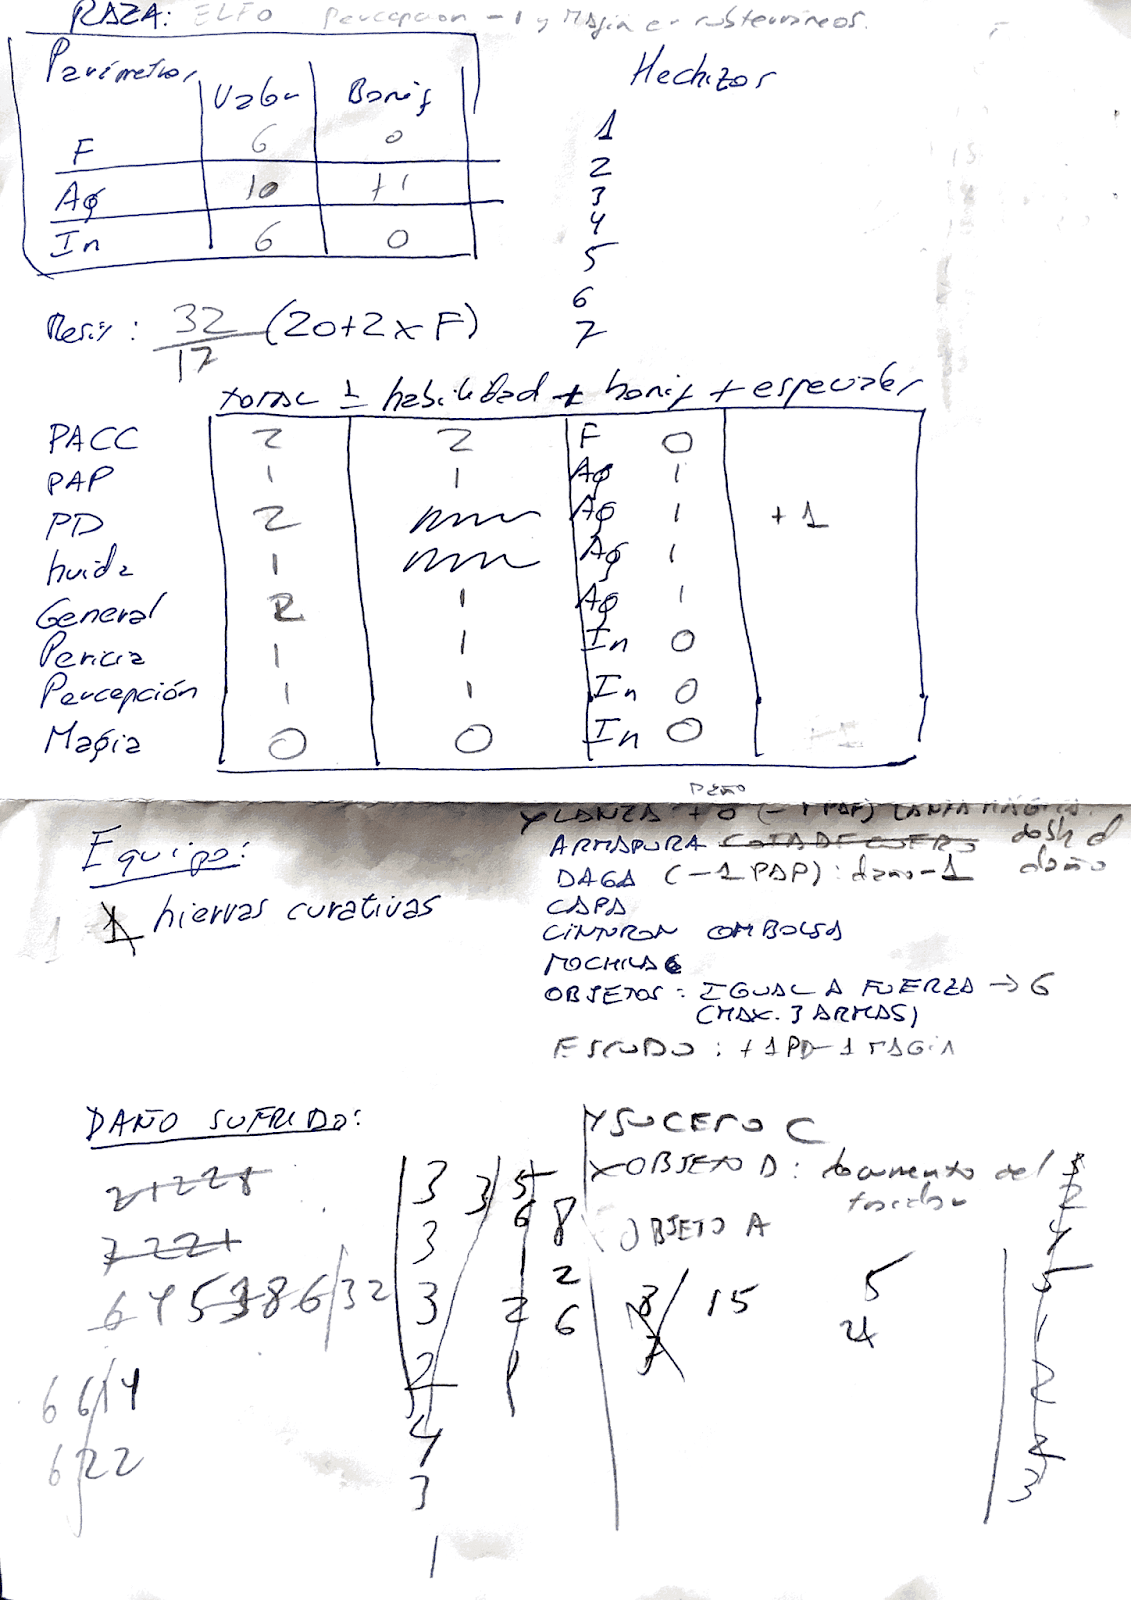 RAZA: ELFO Percepcion -1 y Magia en subterráneos.
Parámetros Valor Bonif
F 6 0
Ag 10 +1
In 6 0
Hechizos
1
2
3
4
5
6
7
Resis: 32 (20+2xF)
17
TOTAL = habilidad + bonif + especiales
PACC 2 2 F 0
PAP 1 1 Ag 1
PD 2 Ag 1 +1
huida 1 Ag 1
General 2 1 Ag 1
Pericia 1 1 In 0
Percepción 1 1 In 0
Magia 0 0 In 0 -1
DAÑO
Equipo:
1 hiervas curativas
LANZA +0 (-1 PAP) LANZA MÁGICA
ARMADURA COTA DE CUERO daño
DAGA (-1 PAP): daño -1
CAPA
CINTURON CON BOLSA
MOCHILA 6
OBJETOS: IGUAL A FUERZA → 6
(MAX. 3 ARMAS)
ESCUDO: +1 PD -1 MAGIA
DAÑO SUFRIDO:
SUCESO C
OBJETO D: documento del
OBJETO A
3 3 5
6 8
3
2
3 2 6
8 15 5
7 4
2 1
6 6 14
4
6 22
3
1